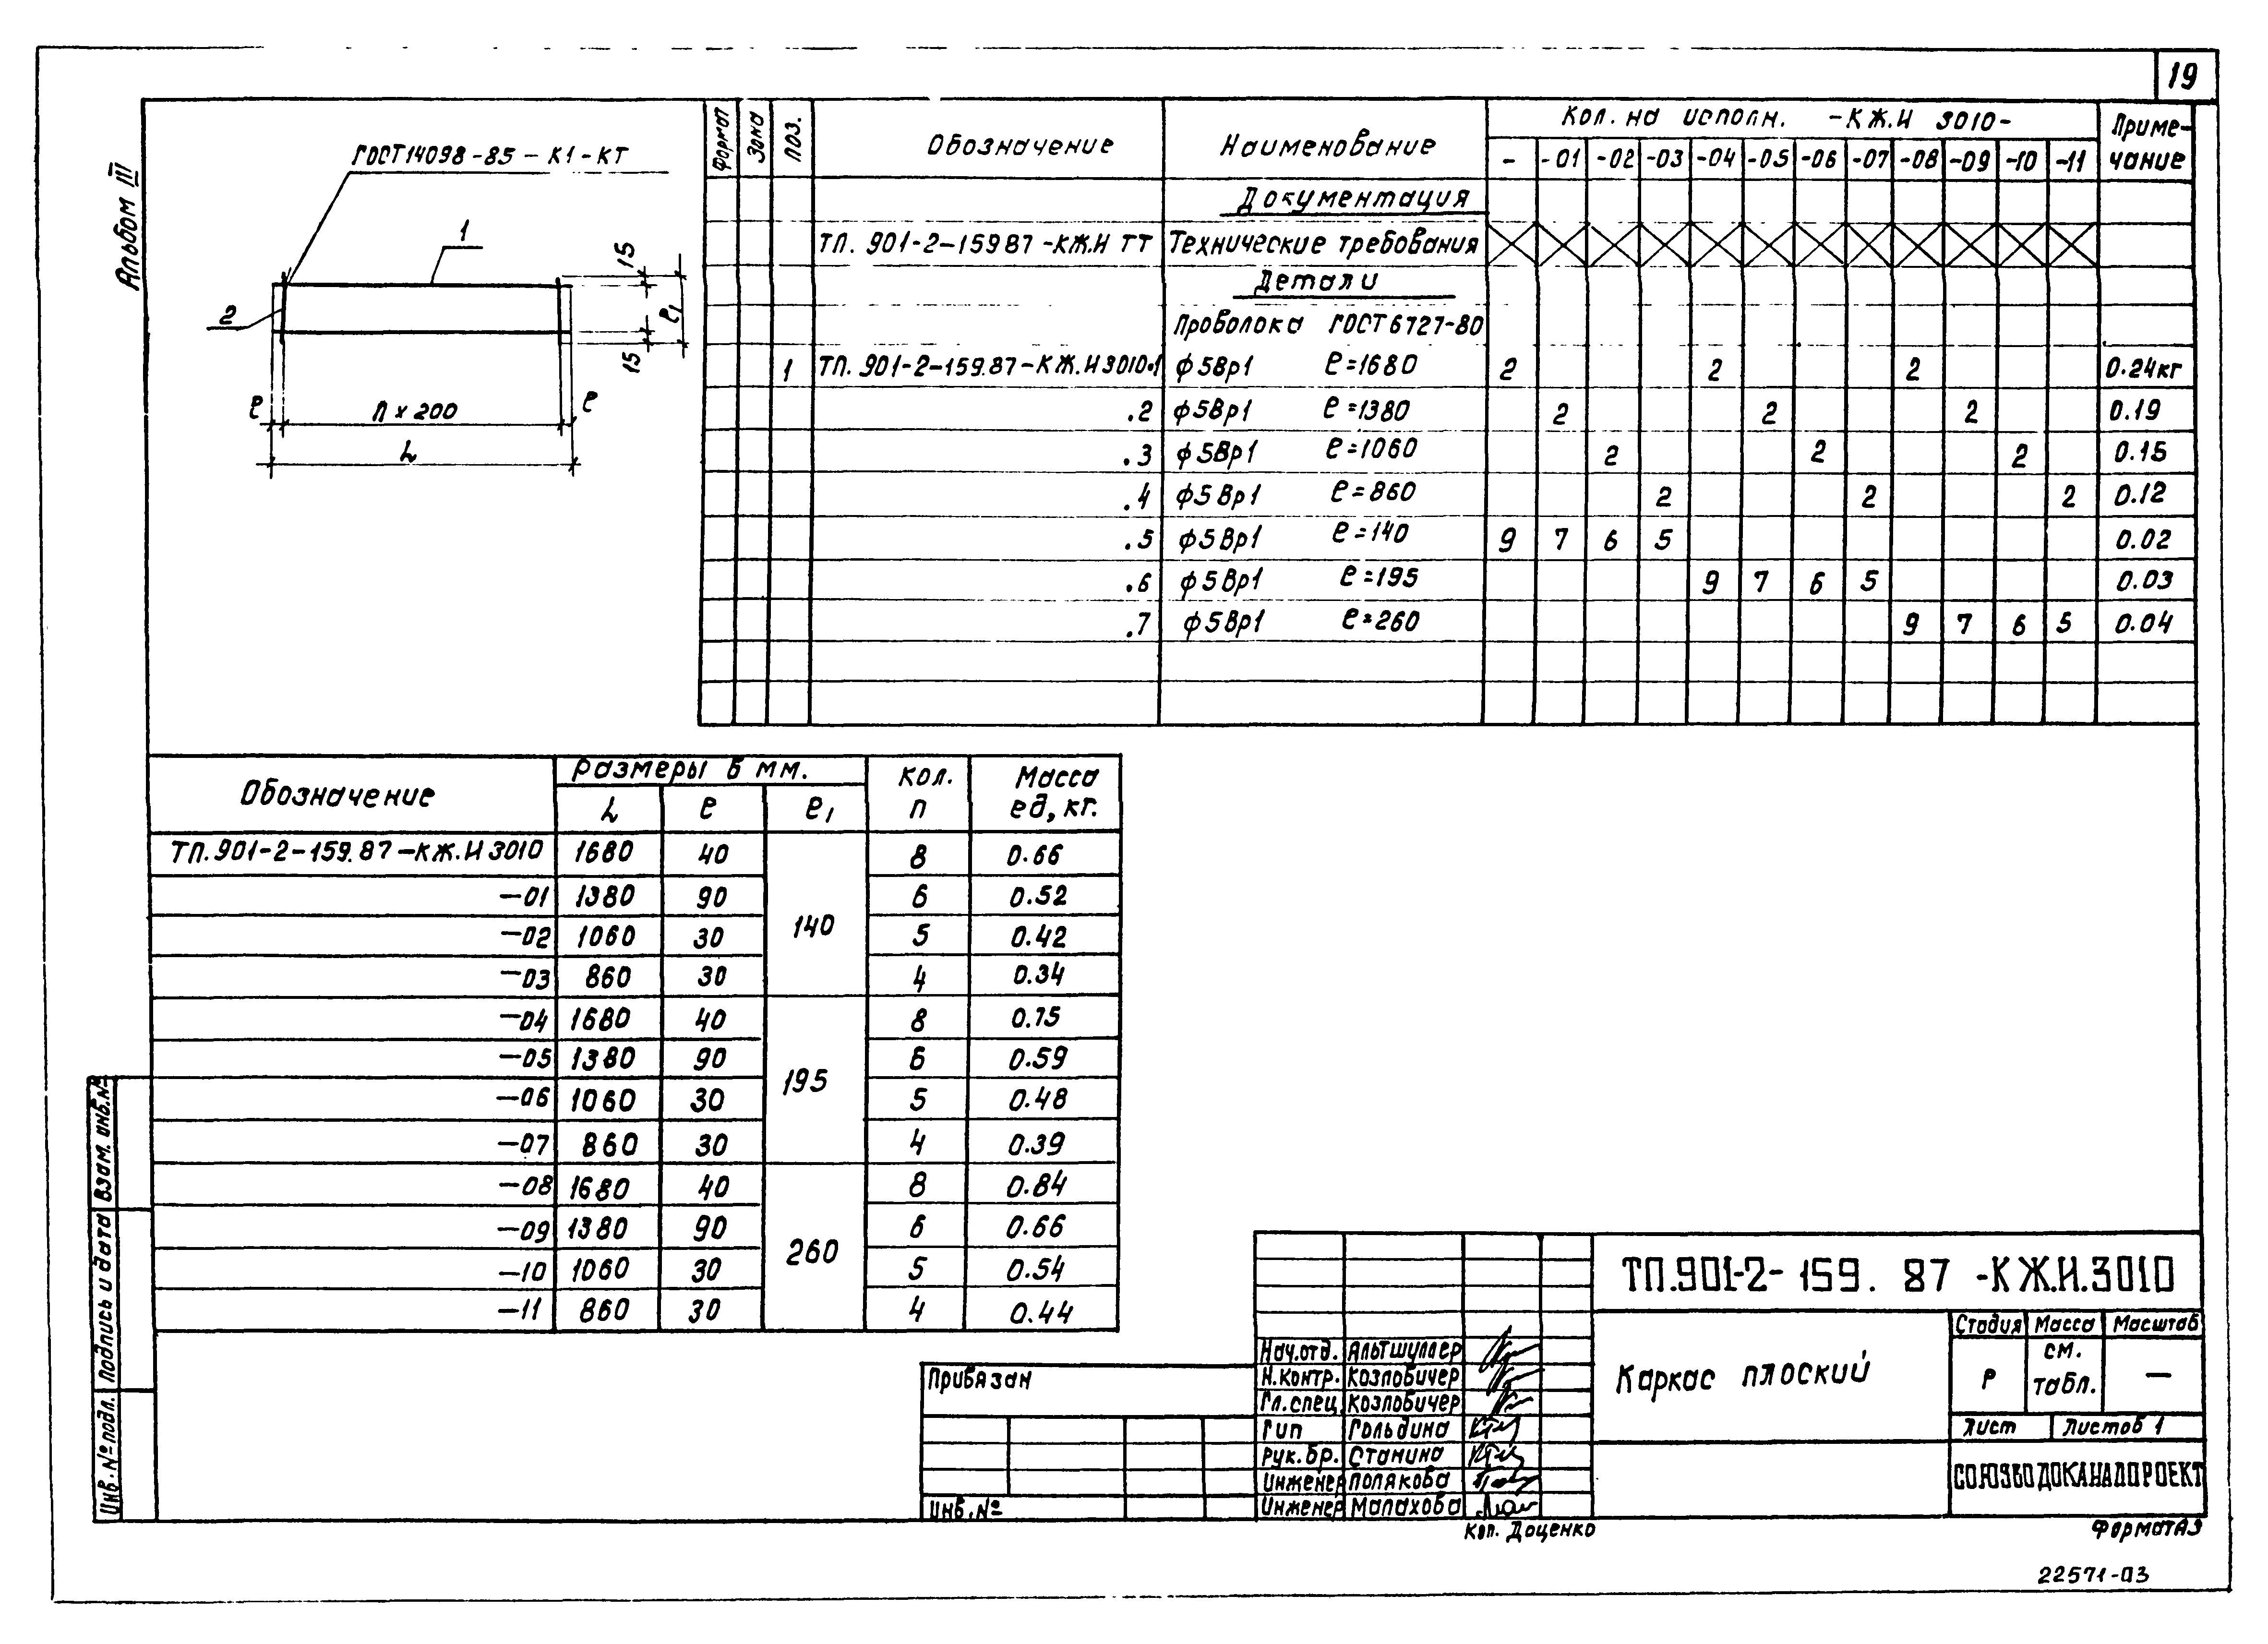 19
Альбом III
ГОСТ 14098-85-К1-КТ
1
2
15
15
ℓ1
ℓ
n x 200
ℓ
L
Формат Зона Поз. Обозначение Наименование Кол. на исполн. -КЖ.И 3010- Приме-
чание
- -01 -02 -03 -04 -05 -06 -07 -08 -09 -10 -11
Документация
ТП. 901-2-159 87-КЖ.И ТТ Технические требования
Детали
Проволока ГОСТ 6727-80
1 ТП. 901-2-159.87-КЖ.И 3010.1 ф5Вр1 ℓ=1680 2 2 2 0.24кг
.2 ф5Вр1 ℓ=1380 2 2 2 0.19
.3 ф5Вр1 ℓ=1060 2 2 2 0.15
.4 ф5Вр1 ℓ=860 2 2 2 0.12
.5 ф5Вр1 ℓ=140 9 7 6 5 0.02
.6 ф5Вр1 ℓ=195 9 7 6 5 0.03
.7 ф5Вр1 ℓ=260 9 7 6 5 0.04
Обозначение Размеры в мм. Кол. Масса
L ℓ ℓ1 n ед, кг.
ТП.901-2-159.87-КЖ.И 3010 1680 40 8 0.66
-01 1380 90 6 0.52
140
-02 1060 30 5 0.42
-03 860 30 4 0.34
-04 1680 40 8 0.75
-05 1380 90 6 0.59
195
-06 1060 30 5 0.48
-07 860 30 4 0.39
-08 1680 40 8 0.84
-09 1380 90 6 0.66
260
-10 1060 30 5 0.54
-11 860 30 4 0.44
Взам. инв.№
Подпись и дата
Инв. № подл.
Привязан
Инв. №
Нач.отд. Альтшуллер
Н.контр. Козловичер
Гл.спец. Козловичер
Гип Гольдина
Рук.бр. Станина
Инженер Полякова
Инженер Малахова
ТП.901-2-159. 87 -КЖ.И.3010
Каркас плоский
Стадия Масса Масштаб
Р см. табл. —
Лист Листов 1
СОЮЗВОДОКАНАЛПРОЕКТ
Коп. Доценко
Формат А3
22571-03